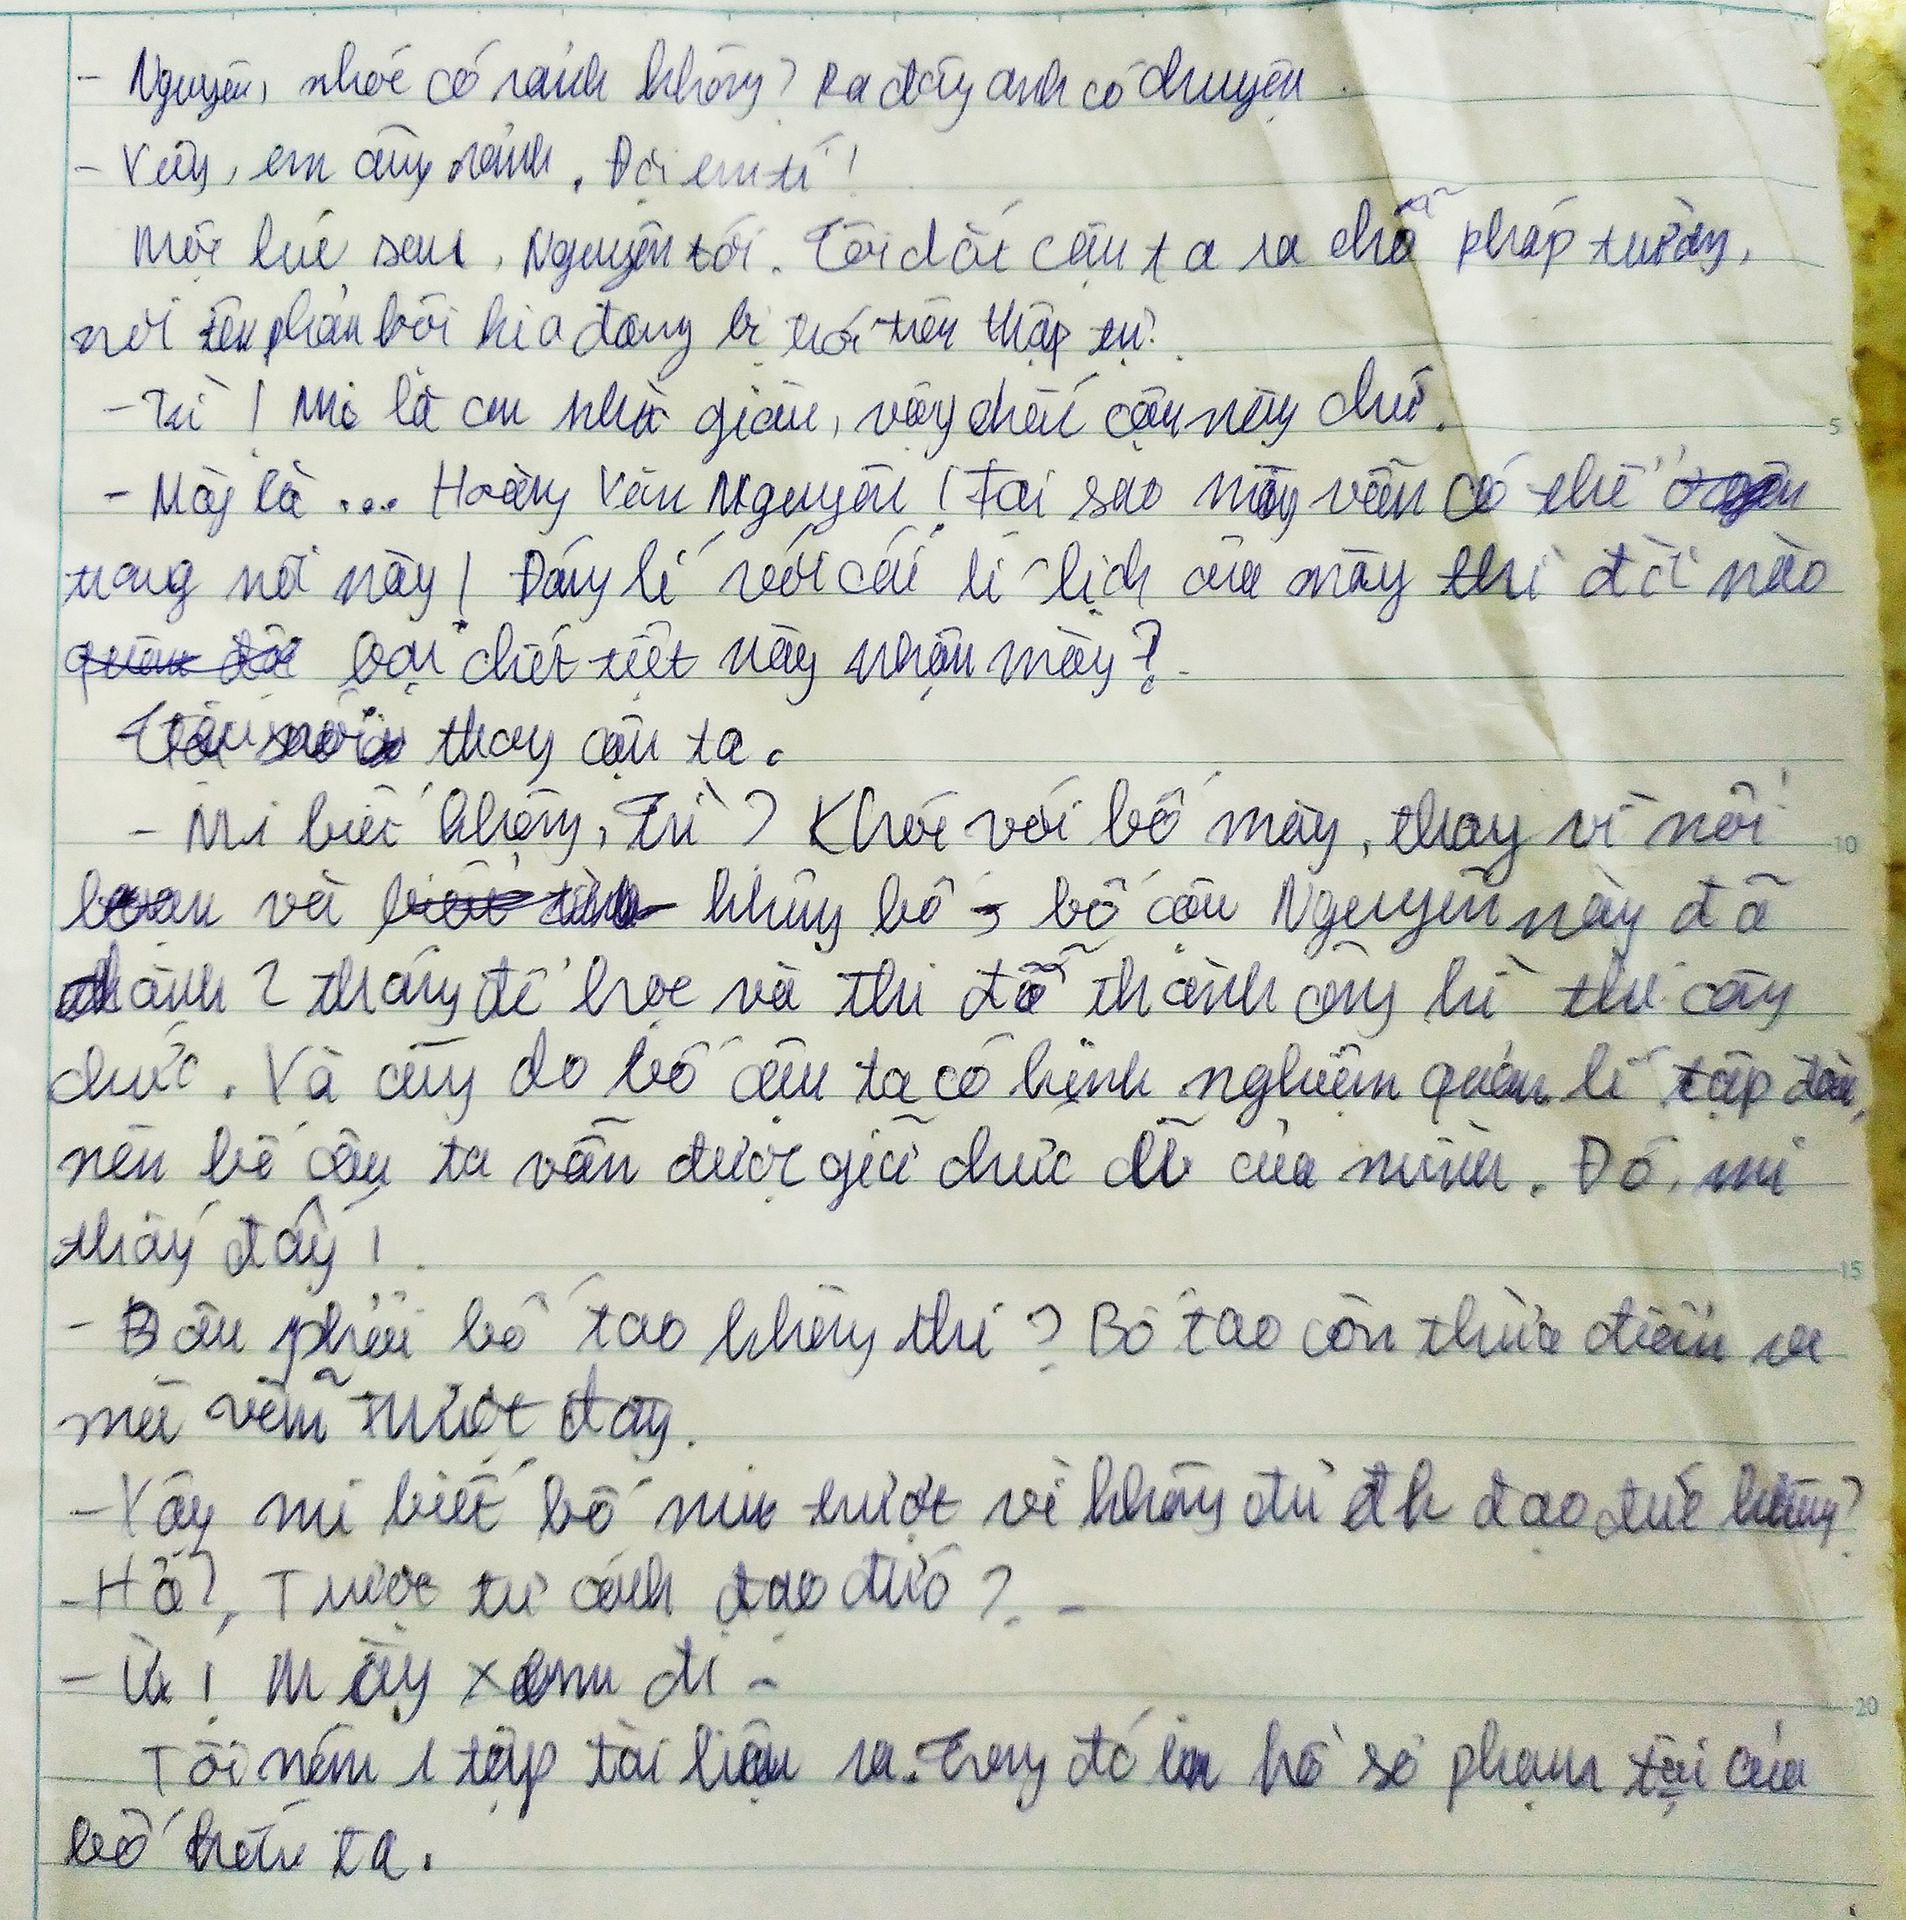 - Nguyên, nhóc có rảnh không? Ra đây anh có chuyện
- Vâng, em đang rảnh. Đợi em tí!
Một lúc sau, Nguyên tới. Tôi dắt cậu ta ra chỗ pháp trường,
nơi tên phản bội kia đang bị trói trên thập tự.
- Trì! Mi là con nhà giàu, vậy chắc cậu này chứ.
- Mày là ... Hoàng Văn Nguyên! Tại sao mày vẫn có thể ở
trong nơi này! Đáng lí với cái lí lịch của mày thì đời nào
bọn chết tiệt này nhận mày?
thay cậu ta.
- Mi biết không, Trì? Khác với bố mày, thay vì nổi
loạn và khủng bố, bố cậu Nguyên này đã
dành 2 tháng để học và thi đỗ thành công kì thi công
chức. Và cũng do bố cậu ta có kinh nghiệm quản lí tập đoàn,
nên bố cậu ta vẫn được giữ chức cũ của mình. Đó, mi
thấy đấy!
- Bộ phải bố tao không thi? Bố tao còn thừa điểm ra
mà vẫn trượt đấy.
- Vậy mi biết bố mi trượt vì không đủ đk đạo đức không?
- Hả?, Trượt tư cách đạo đức?
- Ừ! Mày xem đi -
Tôi ném 1 tập tài liệu ra. Trong đó là hồ sơ phạm tội của
bố hắn ta.